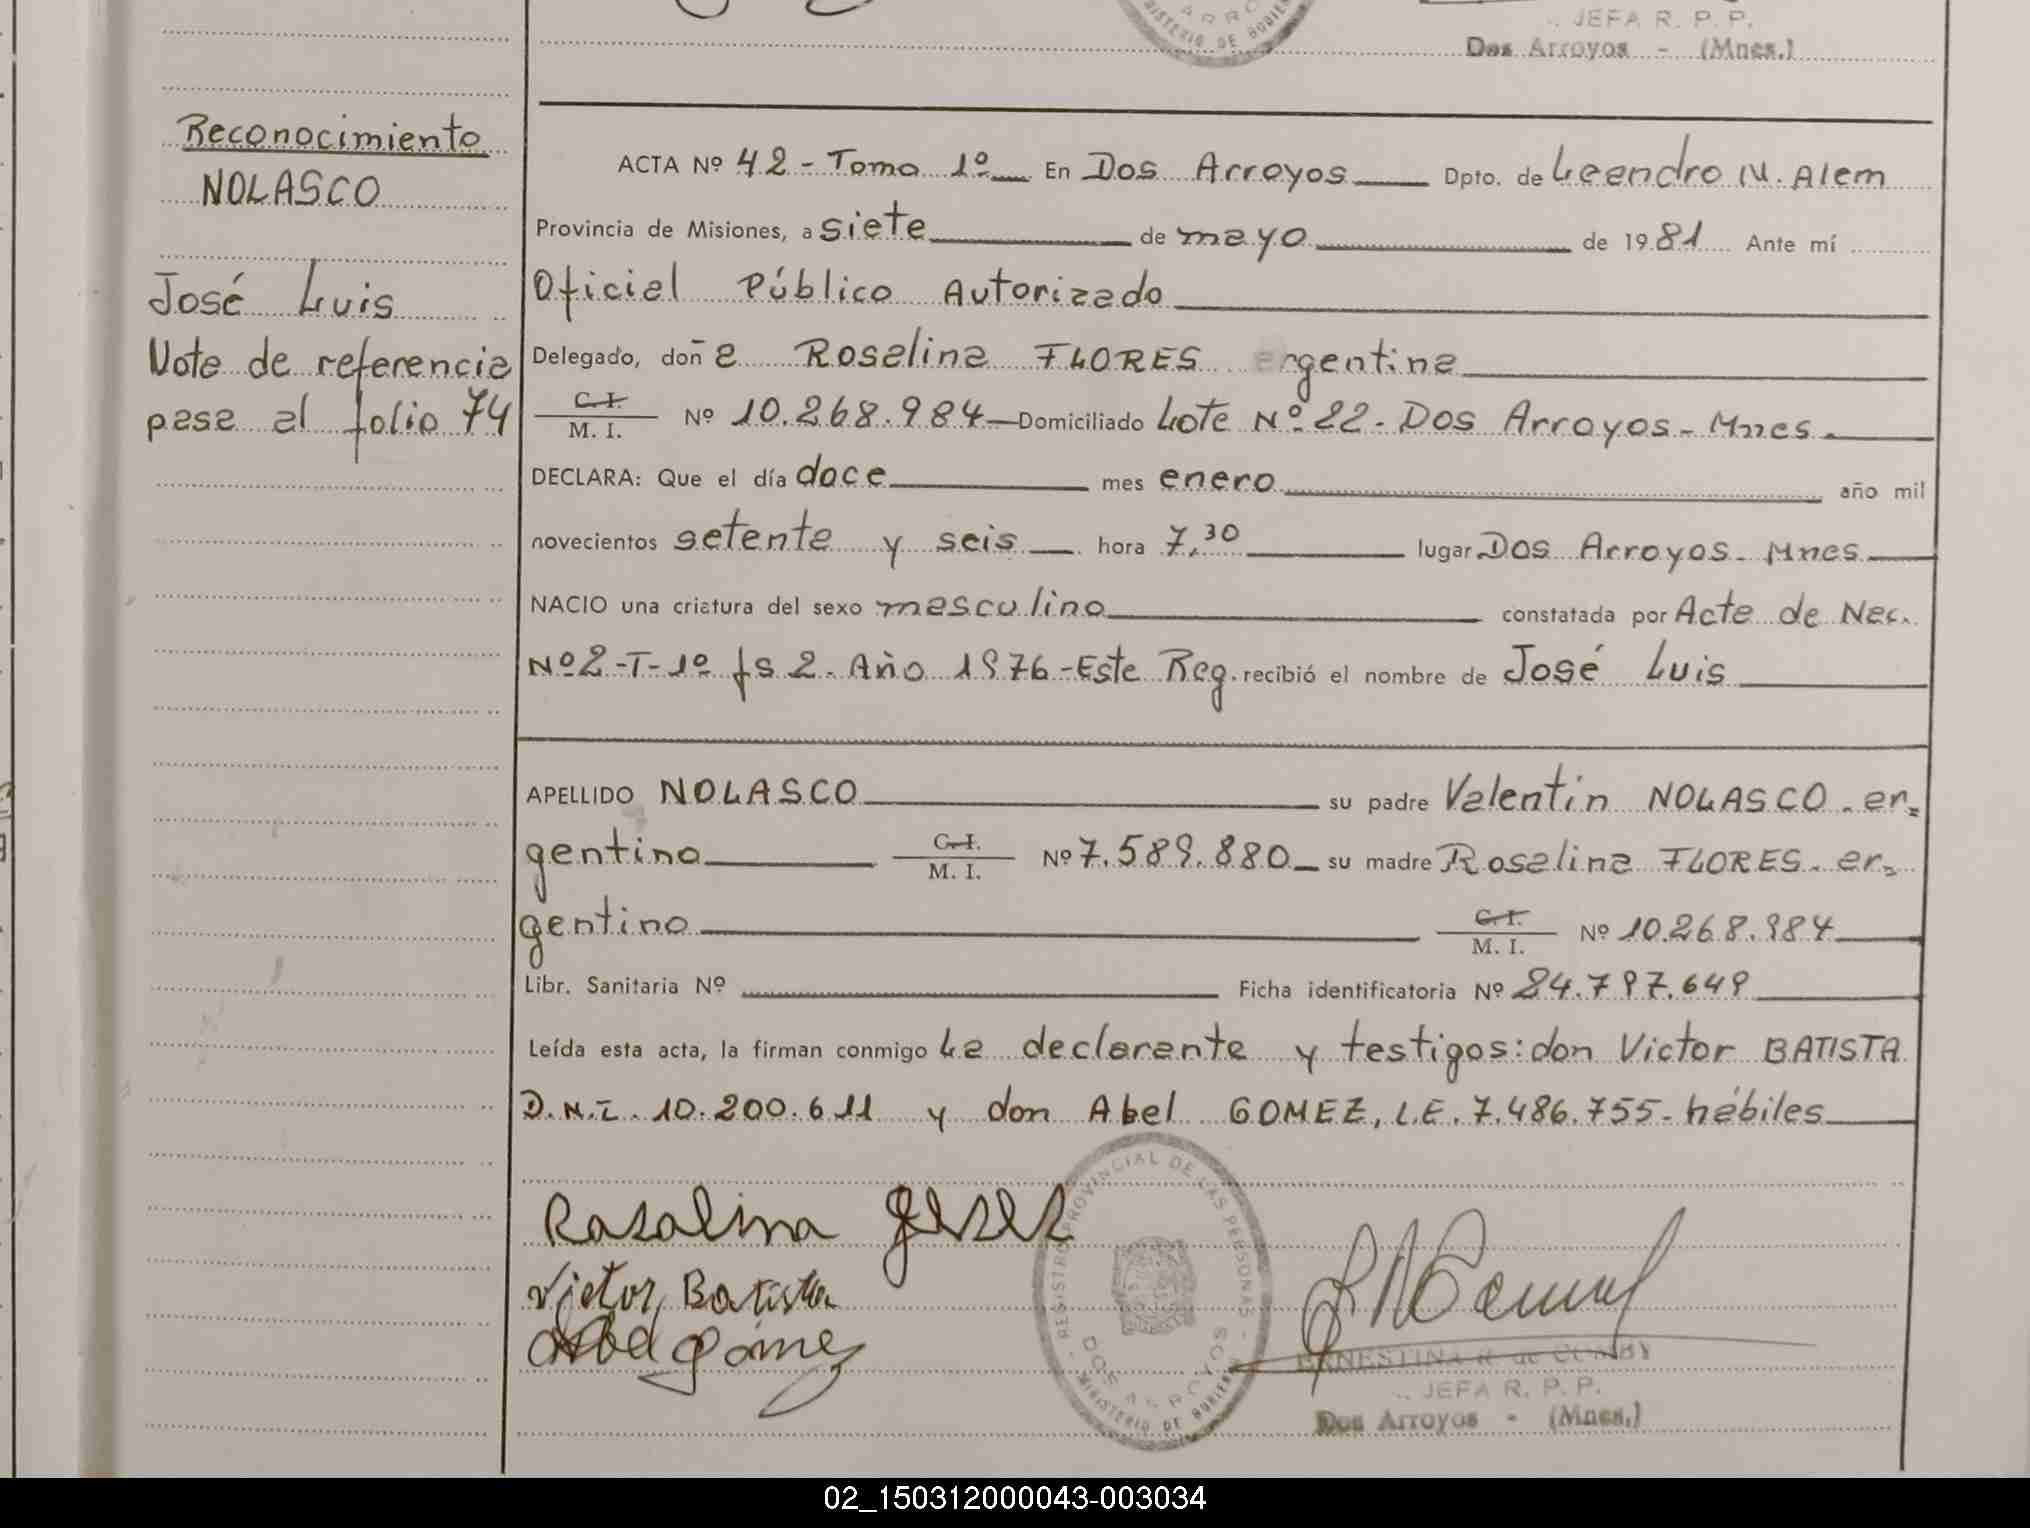 JEFA R. P. P.
Dos Arroyos - (Mnes.)
MINISTERIO DE GOBIERNO
Reconocimiento
NOLASCO
José Luis
Nota de referencia
pasa al folio 74
ACTA Nº 42 - Tomo 1º En Dos Arroyos Dpto. de Leandro N. Alem
Provincia de Misiones, a siete de mayo de 1981 Ante mí
Oficial Público Autorizado
Delegado, doña Rosalina FLORES argentina
C. I. / M. I. Nº 10.268.984 Domiciliado Lote Nº 22 - Dos Arroyos - Mnes.
DECLARA: Que el día doce mes enero año mil
novecientos setenta y seis hora 7,30 lugar Dos Arroyos - Mnes
NACIO una criatura del sexo masculino constatada por Acta de Nac.
Nº 2 - T - 1º fs 2 - Año 1976 - Este Reg. recibió el nombre de José Luis
APELLIDO NOLASCO su padre Valentín NOLASCO - ar=
gentino C. I. / M. I. Nº 7.589.880 su madre Rosalina FLORES - ar=
gentino C. I. / M. I. Nº 10.268.984
Libr. Sanitaria Nº Ficha identificatoria Nº 24.797.649
Leída esta acta, la firman conmigo La declarante y testigos: don Victor BATISTA
D.N.I. 10.200.611 y don Abel GOMEZ, L.E. 7.486.755 - hábiles
Rosalina
Victor Batista
Abel Gómez
REGISTRO PROVINCIAL DE LAS PERSONAS
DOS ARROYOS
MINISTERIO DE GOBIERNO
ERNESTINA R. de
JEFA R. P. P.
Dos Arroyos - (Mnes.)
02_150312000043-003034